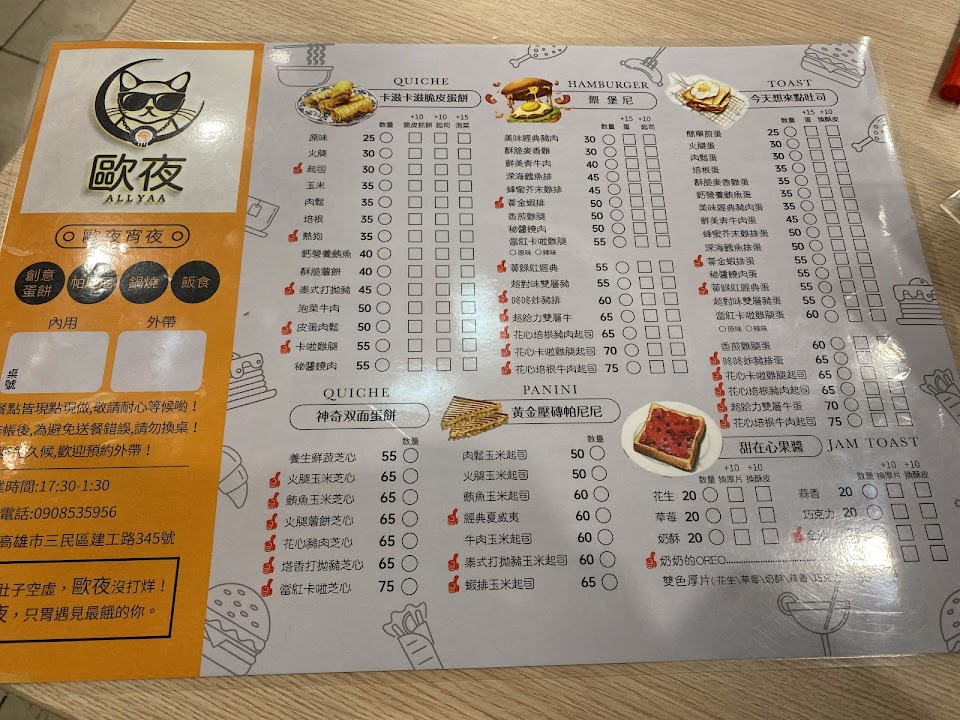 歐夜
ALLYAA
歐夜宵夜
創意蛋餅
帕尼尼
鍋燒
飯食
內用
外帶
桌號
餐點皆現點現做,敬請耐心等候喲！
帳後,為避免送餐錯誤,請勿換桌！
久候,歡迎預約外帶！
業時間:17:30-1:30
電話:0908535956
高雄市三民區建工路345號
肚子空虛，歐夜沒打烊！
夜，只胃遇見最餓的你。
QUICHE
卡滋卡滋脆皮蛋餅
+10 +10 +15
數量 脆皮抓餅 起司 泡菜
原味 25
火腿 30
起司 30
玉米 35
肉鬆 35
培根 35
熱狗 35
鈣營養鮪魚 40
酥脆薯餅 40
泰式打拋豬 45
泡菜牛肉 50
皮蛋肉鬆 50
卡啦雞腿 55
秘醬燒肉 55
HAMBURGER
餵 堡 尼
+15 +10
數量 蛋 起司
美味經典豬肉 30
酥脆麥香雞 30
鮮美奔牛肉 40
深海鱈魚排 45
蜂蜜芥末雞排 45
黃金蝦排 50
香煎雞腿 50
秘醬燒肉 50
當紅卡啦雞腿 55
○原味 ○辣味
黃綠紅經典 55
超對味雙層豬 55
咚咚炸豬排 60
超跄力雙層牛 65
花心培根豬肉起司 65
花心卡啦雞腿起司 70
花心培根牛肉起司 75
TOAST
今天想來點吐司
+15 +10
數量 蛋 換酥皮
簡單煎蛋 25
火腿蛋 30
肉鬆蛋 30
培根蛋 35
酥脆麥香雞蛋 35
鈣營養鮪魚蛋 35
美味經典豬肉蛋 35
鮮美奔牛肉蛋 45
蜂蜜芥末雞排蛋 50
深海鱈魚排蛋 50
黃金蝦排蛋 55
秘醬燒肉蛋 55
黃綠紅經典蛋 55
超對味雙層豬蛋 60
當紅卡啦雞腿蛋 60
○原味 ○辣味
香煎雞腿蛋 60
咚咚炸豬排蛋 65
花心卡啦雞腿起司 65
花心培根豬肉起司 65
超跄力雙層牛蛋 70
花心培根牛肉起司 75
QUICHE
神奇双面蛋餅
數量
養生鮮蔬芝心 55
火腿玉米芝心 65
鮪魚玉米芝心 65
火腿薯餅芝心 65
花心豬肉芝心 65
塔香打拋豬芝心 65
當紅卡啦芝心 75
PANINI
黃金壓磚帕尼尼
數量
肉鬆玉米起司 50
火腿玉米起司 50
鮪魚玉米起司 60
經典夏威夷 60
牛肉玉米起司 60
泰式打拋豬玉米起司 60
蝦排玉米起司 65
甜在心果醬
JAM TOAST
+10 +10
數量 換厚片 換酥皮
花生 20
草莓 20
奶酥 20
+10 +10
數量 換厚片 換酥皮
蒜香 20
巧克力 20
金沙
奶奶的OREO
雙色厚片(花生\草莓\奶酥\蒜香\巧克